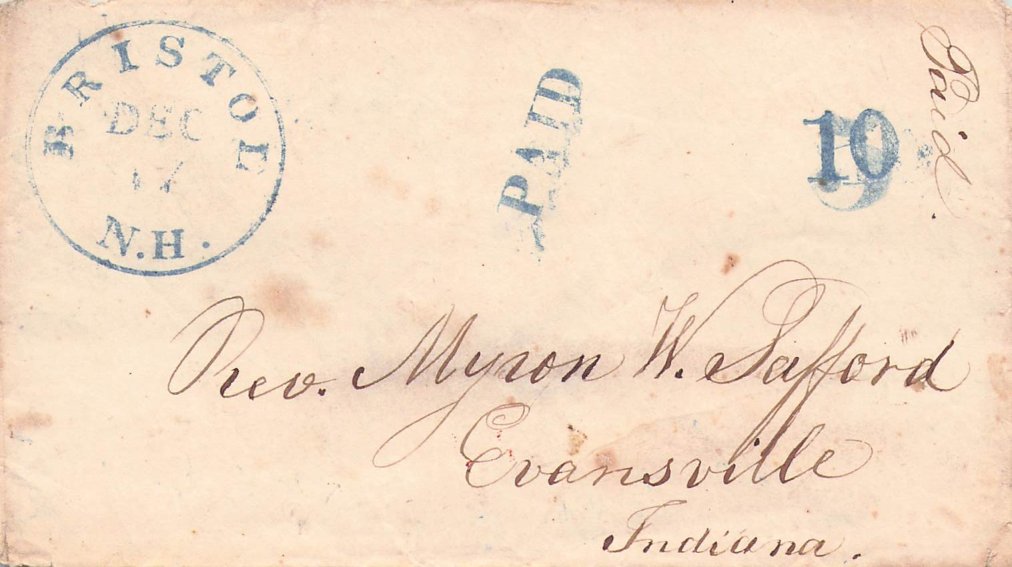 BRISTOL
DEC
17
N.H.
PAID
10
Paid.
Rev. Myron W. Safford
Evansville
Indiana.